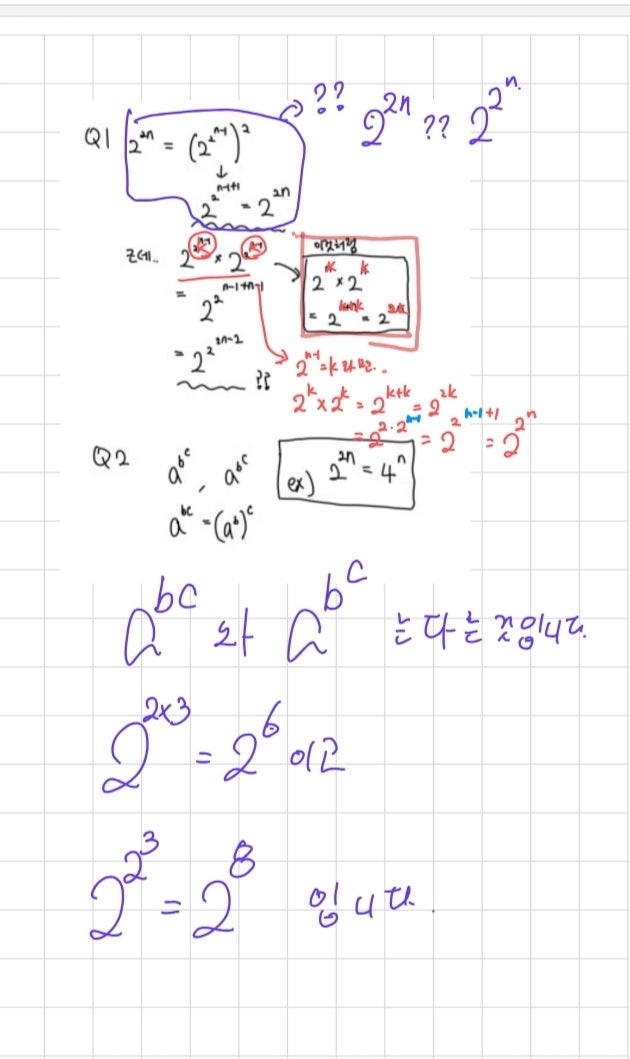 ?? 2^{2n} ?? 2^{2^n}.
Q1 2^{2n} = (2^{2^{n-1}})^2
↓
2^{2^{n-1+1}} = 2^{2n}
근데.. 2^{2^{n-1}} × 2^{2^{n-1}} → 이것처럼
2^k × 2^k
= 2^{k+k} = 2^{2k}
= 2^{2^{n-1+n-1}}
= 2^{2^{2n-2}} ??
2^{n-1} = k라면..
2^k × 2^k = 2^{k+k} = 2^{2k}
= 2^{2·2^{n-1}} = 2^{2^{n-1+1}} = 2^{2^n}
Q2 a^{b^c}, a^{b^c} ex) 2^{2n} = 4^n
a^{bc} = (a^b)^c
a^{bc} 와 a^{b^c} 는 다른 것입니다.
2^{2×3} = 2^6 이고
2^{2^3} = 2^8 입니다.